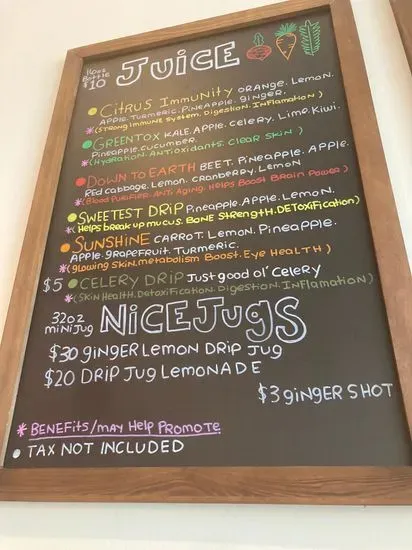 16oz Bottle $10 JUiCE
CiTRUS Immunity ORANGE. LEMON.
APPLE. TURMERiC. PiNEAPPLE. GiNGER.
*(STRONG IMMUNE SYSTEM. DIGESTION. INFlAMATiON)
GREENTOX KALE. APPLE. CELERY. LiME. KiWi.
Pineapple. CUCUMBER.
*(HYDRATiON. ANTiOXiDANTS. CLEAR SKiN)
DOWN TO EARTH BEET. PINEAPPLE. APPLE.
RED CABBAGE. LEMON. CRANBERRY. LEMON
*(BLOOD PURiFiER. ANTi AGiNG. HELPS BOOST BRAiN POWER)
SWEETEST DRiP PiNEAPPLE. APPLE. LEMON.
*(HELPS BREAK UP MUCUS. BONE STRENGTH. DETOXiFiCATiON)
SUNSHiNE CARROT. LEMON. PiNEAPPLE.
APPLE. GRAPEFRUiT. TURMERiC.
*(GLOWiNG SKiN. METABOLiSM BOOST. EYE HEALTH)
$5 CELERY DRiP JUST GOOD OL' CELERY
*(SKiN HEALTH. DETOXiFiCATiON. DiGESTiON. INFLAMATiON)
32oz miNi JUg NiCE JUgS
$30 giNgER LEMON DRiP JUg
$20 DRiP JUg LEMONADE
$3 giNgER SHOT
* BENEFiTS/MAY HELP PROMOTE
• TAX NOT INCLUDED